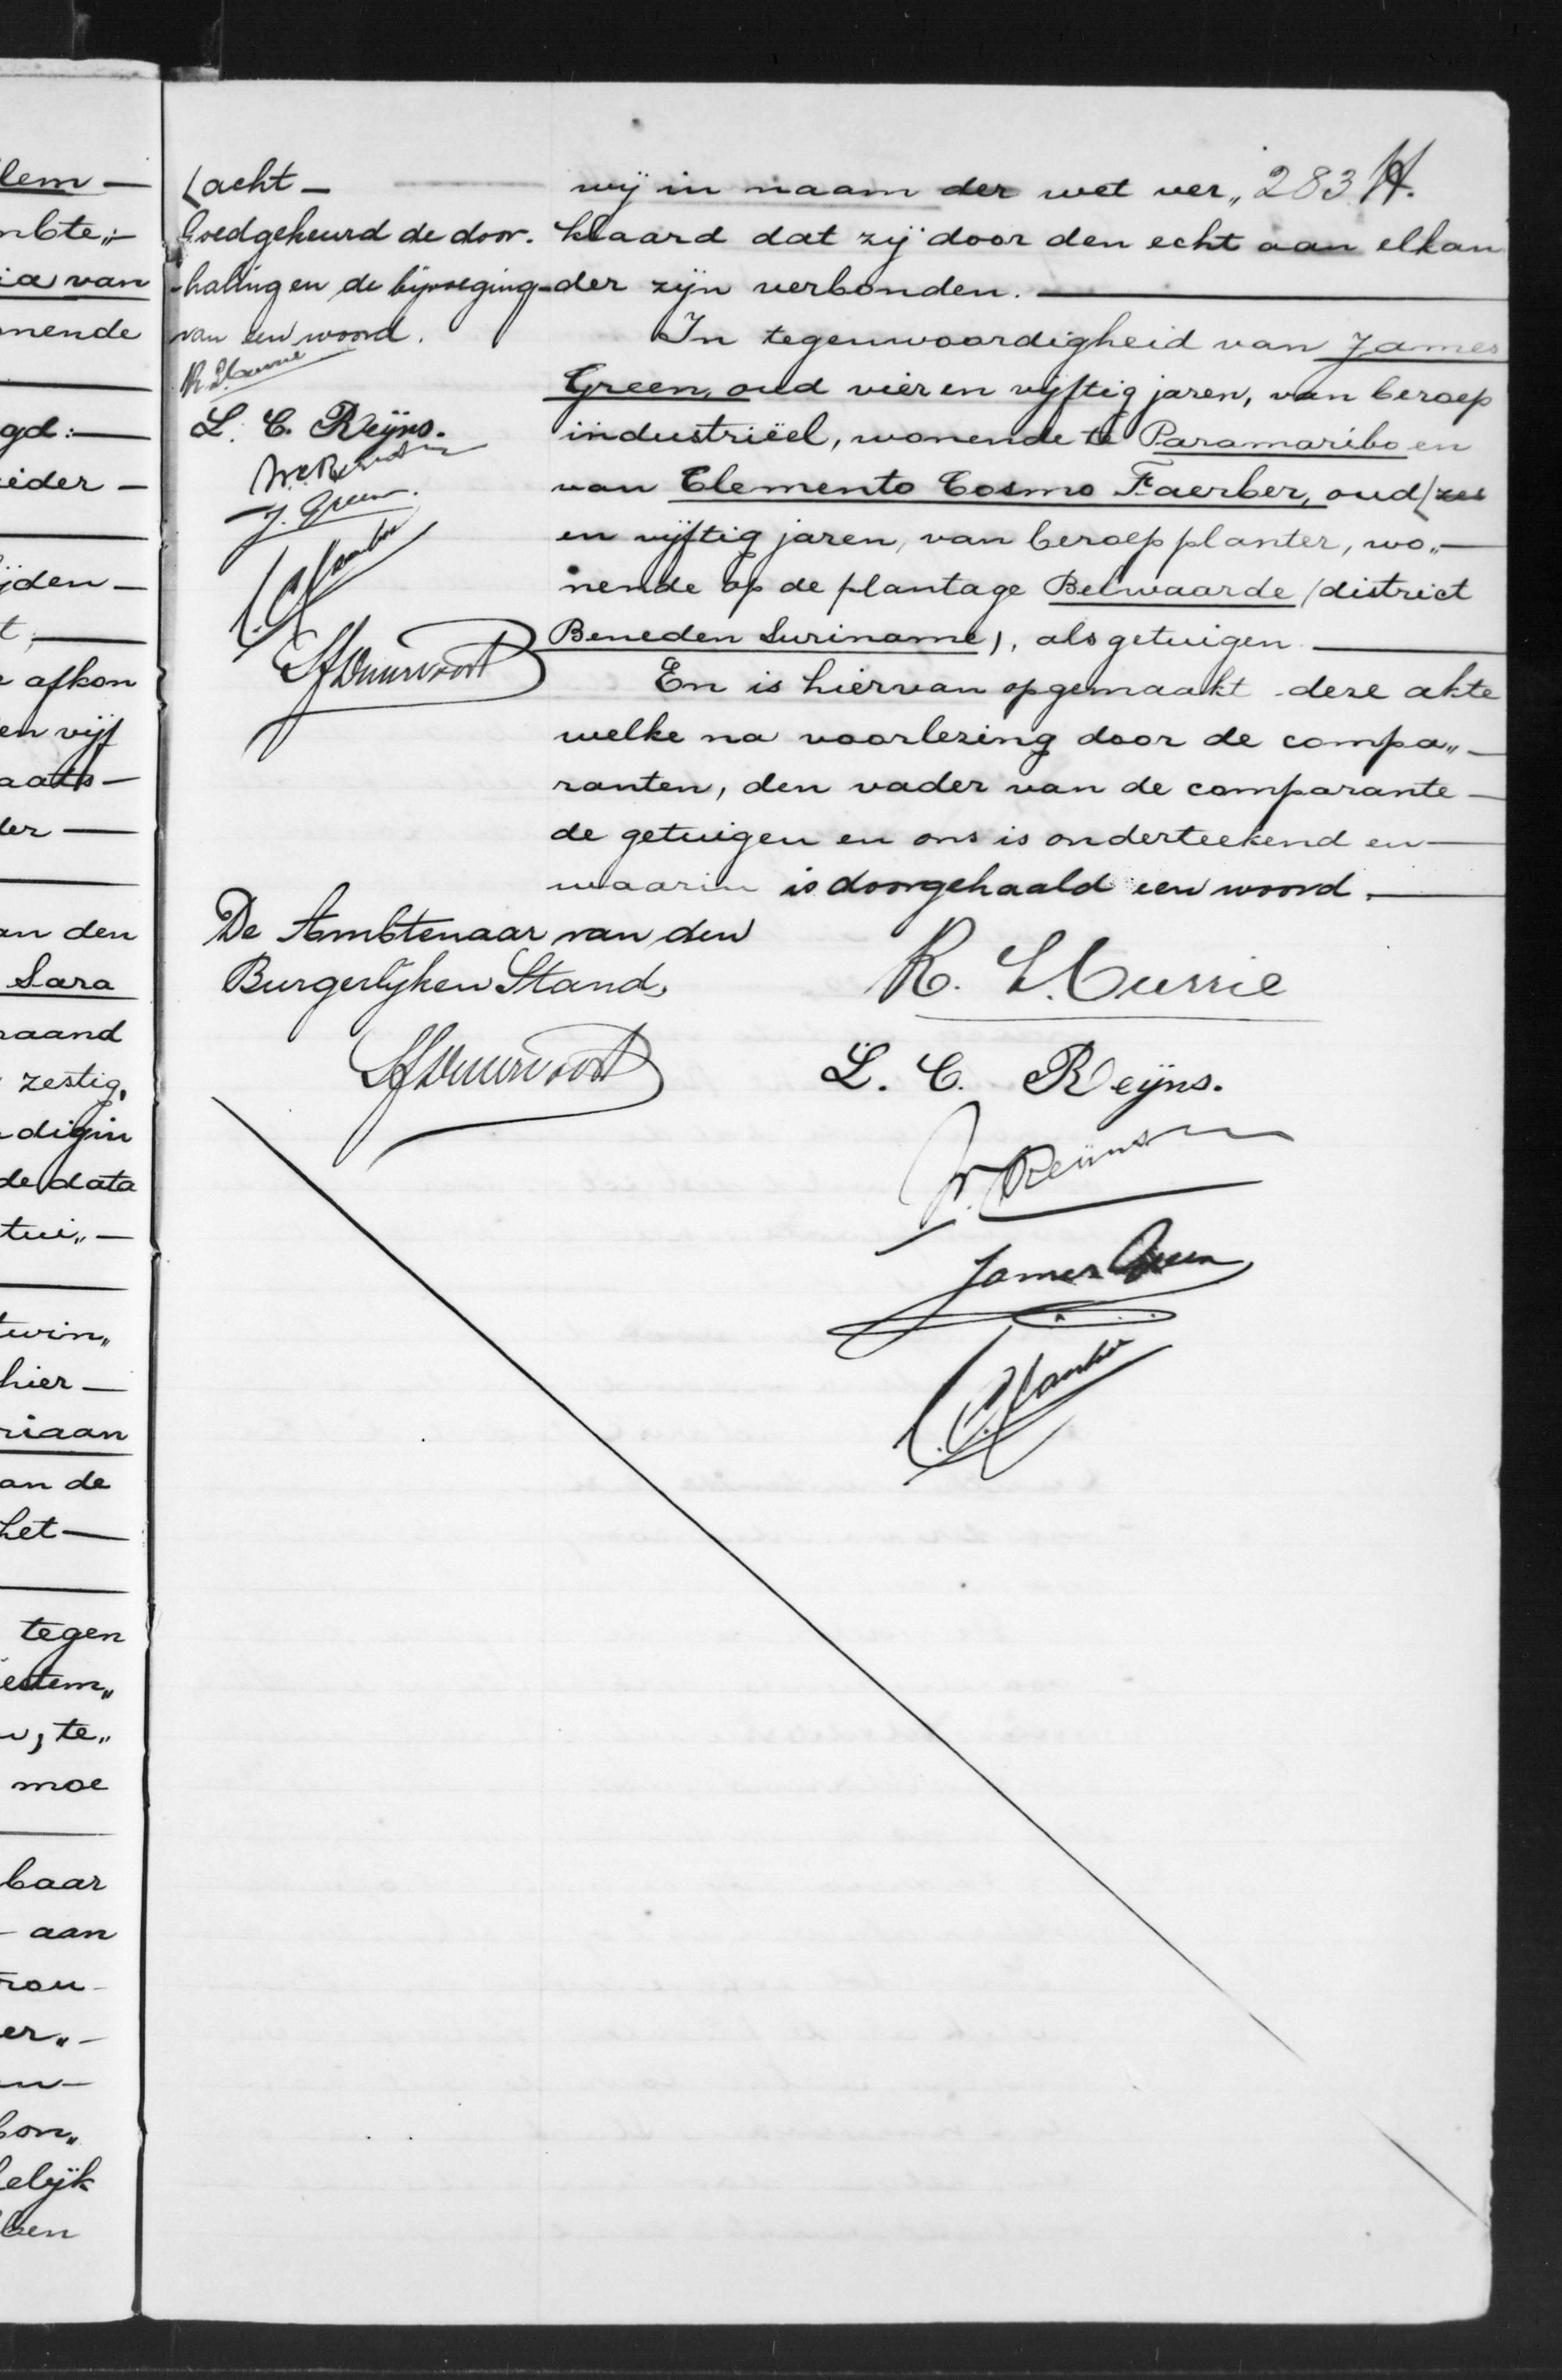 lem —
mbte„-
ia van
nende
gd: —
ieder —
ijden —
t, —
afkon
en vijf
aats —
der —
an den
Sara
maand
zestig,
digin
de data
tui„ —
twin„
hier —
riaan
an de
het —
tegen
estem„
te„
moe
baar
- aan
rou-
er„-
kon„
elijk
ben
⌊acht —
Goedgekeurd de door-
-haling en de bijvoeging
van een woord.
R. L. Currie
L. C. Reijns.
J. Green.
wij in naam der wet ver„ 283
klaard dat zij door den echt aan elkan
der zijn verbonden. —
In tegenwoordigheid van James
Green, oud vier en vijftig jaren, van beroep
industriëel, wonende te Paramaribo en
van Clemento Cosmo Faerber, oud ⌊zes
en vijftig jaren, van beroep planter, wo„—
nende op de plantage Belwaarde (district
Beneden Suriname), als getuigen. —
En is hiervan opgemaakt deze akte
welke na voorlezing door de compa„—
ranten, den vader van de comparante —
de getuigen en ons is onderteekend en —
waarin is doorgehaald een woord. —
De Ambtenaar van den
Burgerlijken Stand,
R. L. Currie
L. C. Reijns.
James Green